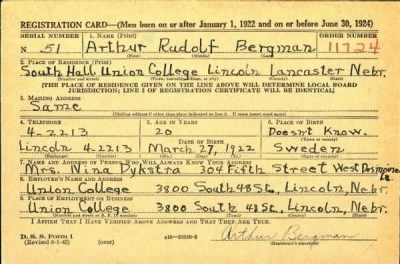 REGISTRATION CARD—(Men born on or after January 1, 1922 and on or before June 30, 1924)
SERIAL NUMBER 1. NAME (Print) ORDER NUMBER
N 51 Arthur Rudolf Bergman 11724
(First) (Middle) (Last)
2. PLACE OF RESIDENCE (Print)
South Hall Union College Lincoln Lancaster Nebr.
[THE PLACE OF RESIDENCE GIVEN ON THE LINE ABOVE WILL DETERMINE LOCAL BOARD
JURISDICTION; LINE 2 OF REGISTRATION CERTIFICATE WILL BE IDENTICAL]
3. MAILING ADDRESS
Same
[Mailing address if other than place indicated on line 2. If same insert word same]
4. TELEPHONE 5. AGE IN YEARS 6. PLACE OF BIRTH
4-2213 20 Doesn't Know.
DATE OF BIRTH
Lincoln 4-2213 March 27, 1922 Sweden
7. NAME AND ADDRESS OF PERSON WHO WILL ALWAYS KNOW YOUR ADDRESS
Mrs. Nina Dykstra 304 Fifth Street West Desmoine
Ia.
8. EMPLOYER'S NAME AND ADDRESS
Union College 3800 South 48 St., Lincoln, Nebr.
9. PLACE OF EMPLOYMENT OR BUSINESS
Union College 3800 South 48 St., Lincoln, Nebr.
I AFFIRM THAT I HAVE VERIFIED ABOVE ANSWERS AND THAT THEY ARE TRUE.
D. S. S. Form 1
(Revised 6-1-42) (over)
Arthur Bergman
(Registrant's signature)